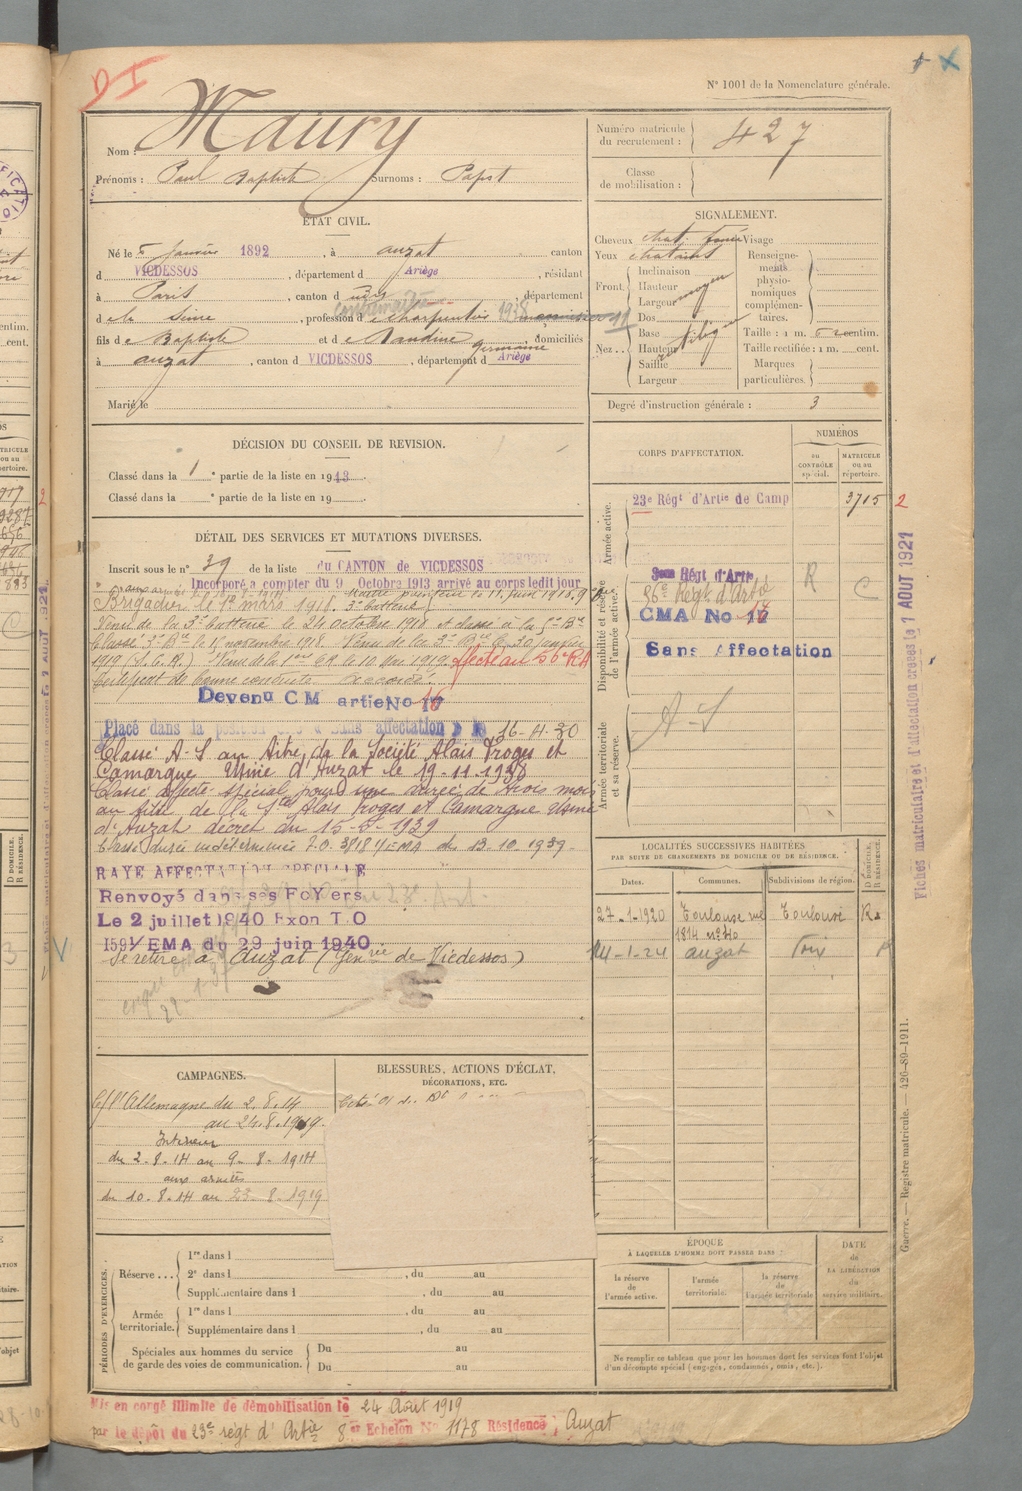 DI
N° 1001 de la Nomenclature générale.
Nom : Maury
Prénoms : Paul Baptiste Surnoms : Papst
Numéro matricule du recrutement : 427
Classe de mobilisation :
ÉTAT CIVIL.
Né le 5 Janvier 1892, à auzat canton
d VICDESSOS, département d Ariège, résidant
à Paris, canton d, département
d e la Seine, profession d e charpentier 1938
fils de Baptiste et de Naudine germaine, domiciliés
à auzat, canton d VICDESSOS, département d Ariège
Marié le
SIGNALEMENT.
Cheveux chat. foncé Visage
Yeux chatains
Front. Inclinaison
Hauteur
Largeur moyen
Nez .. Dos
Base
Hauteur
Saillie
Largeur
Renseignements physionomiques complémentaires.
Taille : 1 m. centim.
Taille rectifiée : 1 m. cent.
Marques particulières.
Degré d'instruction générale : 3
DÉCISION DU CONSEIL DE REVISION.
Classé dans la 1 e partie de la liste en 1913.
Classé dans la e partie de la liste en 19
CORPS D'AFFECTATION.
NUMÉROS
au CONTRÔLE spécial.
MATRICULE ou au répertoire.
Armée active.
23e Régt d'Artie de Camp 3715 2
Disponibilité et réserve de l'armée active.
56e Régt d'Artie R C
CMA No 18
Sans Affectation
Armée territoriale et sa réserve.
A-S
DÉTAIL DES SERVICES ET MUTATIONS DIVERSES.
Inscrit sous le n° 39 de la liste du CANTON de VICDESSOS
Incorporé a compter du 9 Octobre 1913 arrivé au corps ledit jour
Maitre pointeur le 11 juin 1918
Brigadier le 1er mars 1918. 3e batterie
Venu de la 3e batterie le 24 octobre 1918 et classé à la 5e Bie
Classé 3e Bie le 11 novembre 1918. Venu de la 3e Bie le 30 janvier
1919 Venu de la 1ere le 10 Mai 1919. affecté au 56e RA
Certificat de bonne conduite accordé.
Devenu C M artie No 18
Placé dans la position Sans affectation 16-4-30
Classé A-S au titre de la Société Alais Froges et
Camargue Usine d'Auzat le 19-11-1938
Classé affecté spécial pour une durée de trois mois
au titre de la Sté Alais Froges et Camargue Usine
d'Auzat décret du 15-6-1939
Classé durée indéterminée 3818 1/EMA du 13.10.1939.
RAYE AFFECTATION SPECIALE
Renvoyé dans ses FoYers
Le 2 juillet 1940 Exon T.O
1591/EMA du 29 juin 1940
Se retire à Auzat (Gen rie de Vicdessos)
LOCALITÉS SUCCESSIVES HABITÉES
PAR SUITE DE CHANGEMENTS DE DOMICILE OU DE RÉSIDENCE.
Dates. Communes. Subdivisions de région. D DOMICILE. R RÉSIDENCE.
27-1-1920 Toulouse rue Toulouse R
1814 n° 40
14-1-24 auzat Foix
CAMPAGNES.
C/ l'Allemagne du 2.8.14
au 24.8.1919.
Intérieur
du 2-8-14 au 9-8-1914
aux armées
du 10.8.14 au 23-8-1919
BLESSURES, ACTIONS D'ÉCLAT,
DÉCORATIONS, ETC.
PÉRIODES D'EXERCICES.
Réserve... 1re dans l
2e dans l , du au
Supplémentaire dans l , du au
Armée territoriale. 1re dans l , du au
Supplémentaire dans l , du au
Spéciales aux hommes du service de garde des voies de communication. Du au
Du au
ÉPOQUE
À LAQUELLE L'HOMME DOIT PASSER DANS :
la réserve de l'armée active.
l'armée territoriale.
la réserve de l'armée territoriale
DATE DE LA LIBÉRATION du service militaire.
Ne remplir ce tableau que pour les hommes dont les services font l'objet
d'un décompte spécial (engagés, condamnés, omis, etc.).
Mis en congé illimité de démobilisation le 24 Août 1919
par le dépôt du 23e régt d'Artie 8e Echelon N° 1178 Résidence Auzat
Fiches matriculaire et d'affectation créées le 1 AOUT 1921
Guerre. — Registre matricule. — 426-89-1911.